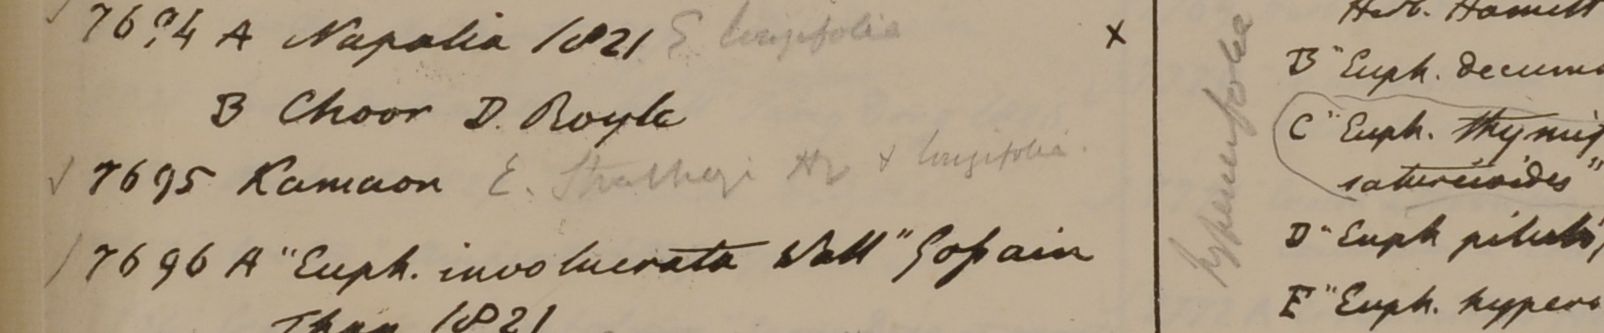 7694 A Napalia 1821 E longifolia x
B Choor D. Royle
7695 Kamaon E. Stracheyi Hf & longifolia.
7696 A "Euph. involucrata Wall" Gossain
Than 1821
hypericifolia
Herb. Hamilt
B "Euph. decum
C "Euph. thymif
satureioides"
D "Euph pilul
E "Euph. hyper